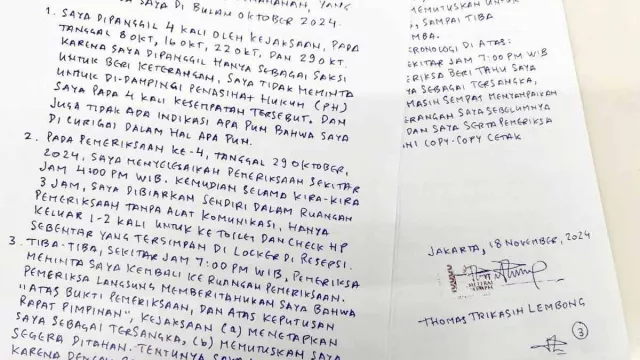 SAYA DI BULAN OKTOBER 2024.
1. SAYA DIPANGGIL 4 KALI OLEH KEJAKSAAN, PADA
TANGGAL 8 OKT, 16 OKT, 22 OKT, DAN 29 OKT.
KARENA SAYA DIPANGGIL HANYA SEBAGAI SAKSI
UNTUK BERI KETERANGAN, SAYA TIDAK MEMINTA
UNTUK DI-DAMPINGI PENASIHAT HUKUM (PH)
SAYA PADA 4 KALI KESEMPATAN TERSEBUT. DAN
JUGA TIDAK ADA INDIKASI APA PUN BAHWA SAYA
DI CURIGAI DALAM HAL APA PUN.
2. PADA PEMERIKSAAN KE-4, TANGGAL 29 OKTOBER,
2024, SAYA MENYELESAIKAN PEMERIKSAAN SEKITAR
JAM 4:00 PM WIB. KEMUDIAN SELAMA KIRA-KIRA
3 JAM, SAYA DIBIARKAN SENDIRI DALAM RUANGAN
PEMERIKSAAN TANPA ALAT KOMUNIKASI, HANYA
KELUAR 1-2 KALI UNTUK KE TOILET DAN CHECK HP
SEBENTAR YANG TERSIMPAN DI LOCKER DI RESEPSI.
3. TIBA-TIBA, SEKITAR JAM 7:00 PM WIB, PEMERIKSA
MEMINTA SAYA KEMBALI KE RUANGAN PEMERIKSAAN.
PEMERIKSA LANGSUNG MEMBERITAHUKAN SAYA BAHWA
"ATAS BUKTI PEMERIKSAAN, DAN ATAS KEPUTUSAN
RAPAT PIMPINAN", KEJAKSAAN (a) MENETAPKAN
SAYA SEBAGAI TERSANGKA, (b) MEMUTUSKAN SAYA
SEGERA DITAHAN. TENTUNYA SAYA
KARENA
MEMUTUSKAN UNTUK
, SAMPAI TIBA
MBA.
RONOLOGI DI ATAS:
EKITAR JAM 7:00 PM WIB
ERIKSA BERI TAHU SAYA
YA SEBAGAI TERSANGKA,
MASIH SEMPAT MENYAMPAIKAN
ERANGAN SAYA SEBELUMNYA
DAN SAYA SERTA PEMERIKSA
NI COPY-COPY CETAK
JAKARTA, 18 NOVEMBER, 2024
THOMAS TRIKASIH LEMBONG
3